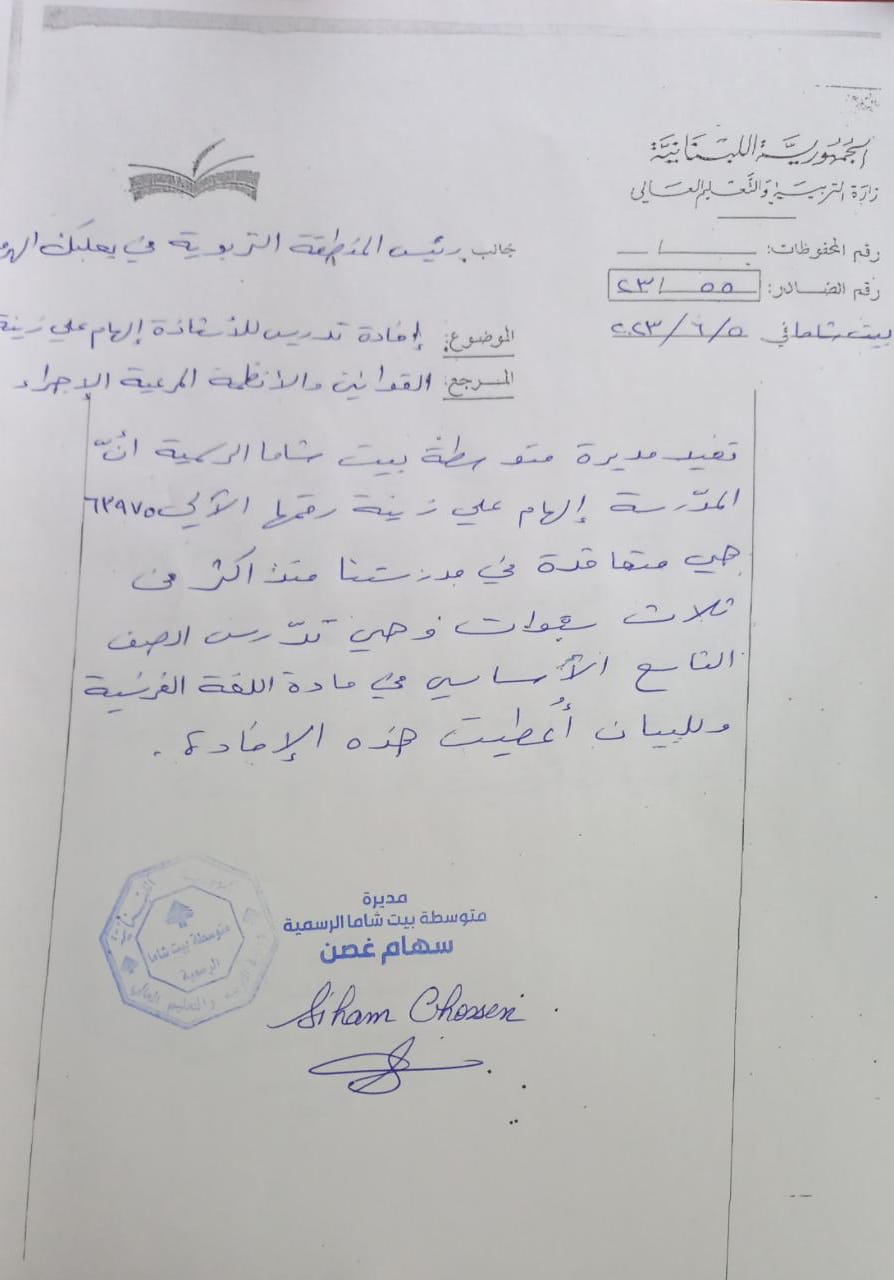 الجمهورية اللبنانية
وزارة التربية والتعليم العالي
رقم المحفوظات: /
رقم الصادر: ٥٥ / ٢٣
بيت شاما في ٢٠٢٣/٦/٥
جانب رئيس المنطقة التربوية في بعلبك
الموضوع: إفادة تدريس للأستاذة إلهام علي زينة
المرجع: القوانين والأنظمة المرعية الإجراء
تفيد مديرة متوسطة بيت شاما الرسمية أنّ
المدّرسة إلهام علي زينة رقمها الآلي ٦٣٩٧٥
هي متعاقدة في مدرستنا منذ اكثر من
ثلاث سنوات وهي تدّرس الصف
التاسع الأساسي في مادة اللغة الفرنسية
وللبيان أُعطيت هذه الإفادة.
مديرة
متوسطة بيت شاما الرسمية
سهام غصن
Siham Ghossen
اللبنانية
متوسطة بيت شاما
الرسمية
والتعليم العالي